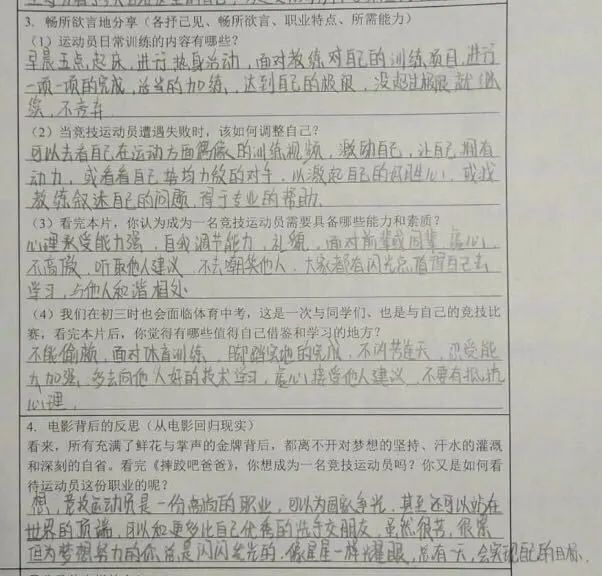 3. 畅所欲言地分享（各抒己见、畅所欲言、职业特点、所需能力）
（1）运动员日常训练的内容有哪些？
早晨五点起床，进行热身活动，面对教练对自己的训练项目，进行
一项一项的完成，适当的加练，达到自己的极限，没超过极限就继
续，不言弃
（2）当竞技运动员遭遇失败时，该如何调整自己？
可以去看自己在运动方面偶像的训练视频，激励自己，让自己拥有
动力，或看看自己势均力敌的对手，以激起自己的好胜心，或找
教练叙述自己的问题，得于专业的帮助。
（3）看完本片，你认为成为一名竞技运动员需要具备哪些能力和素质？
心理承受能力强，自我调节能力，礼貌，面对前辈或同辈，虚心，
不高傲，听取他人建议，不去嘲笑他人，大家都有闪光点值得自己去
学习，与他人和谐相处
（4）我们在初三时也会面临体育中考，这是一次与同学们、也是与自己的竞技比
赛，看完本片后，你觉得有哪些值得自己借鉴和学习的地方？
不能偷懒，面对体育训练，脚踏实地的完成，不叫苦连天，承受能
力加强，多去向他人好的技术学习，虚心接受他人建议，不要有抵抗
心理，
4. 电影背后的反思（从电影回归现实）
看来，所有充满了鲜花与掌声的金牌背后，都离不开对梦想的坚持、汗水的灌溉
和深刻的自省。看完《摔跤吧爸爸》，你想成为一名竞技运动员吗？你又是如何看
待运动员这份职业的呢？
想，竞技运动员是一份高尚的职业，可以为国家争光，甚至还可以站在
世界的顶端，可以和更多比自己优秀的选手交朋友，虽然很苦，很累
但为梦想努力的你总是闪闪发光的，像星星一样耀眼，总有一天，会实现自己的目标．